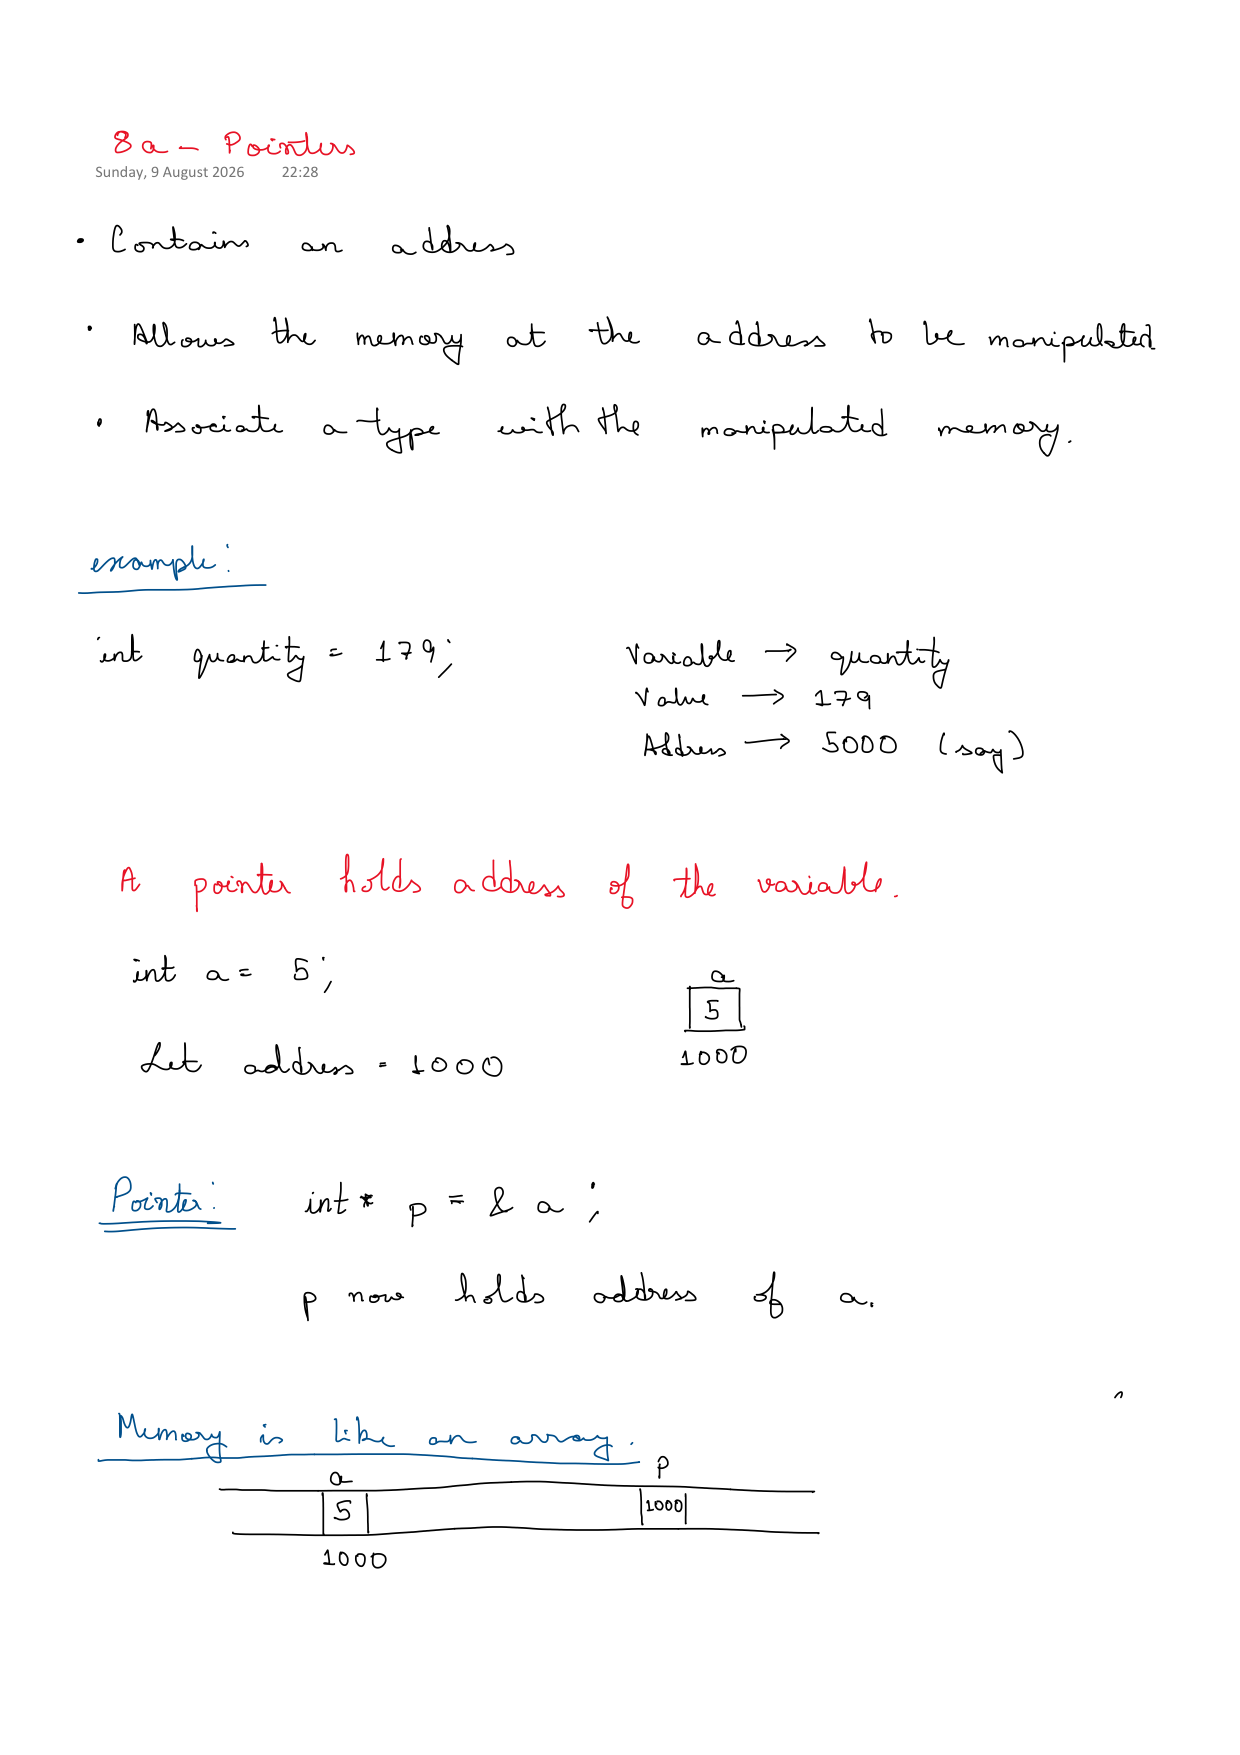 8a - Pointers
Sunday, 9 August 2026 22:28
• Contains an address
• Allows the memory at the address to be manipulated
• Associate a type with the manipulated memory.
example:
int quantity = 179;
Variable → quantity
Value → 179
Address → 5000 (say)
A pointer holds address of the variable.
int a = 5;
a
5
Let address = 1000
1000
Pointer: int* p = & a ;
p now holds address of a.
Memory is like an array.
a p
5 1000
1000